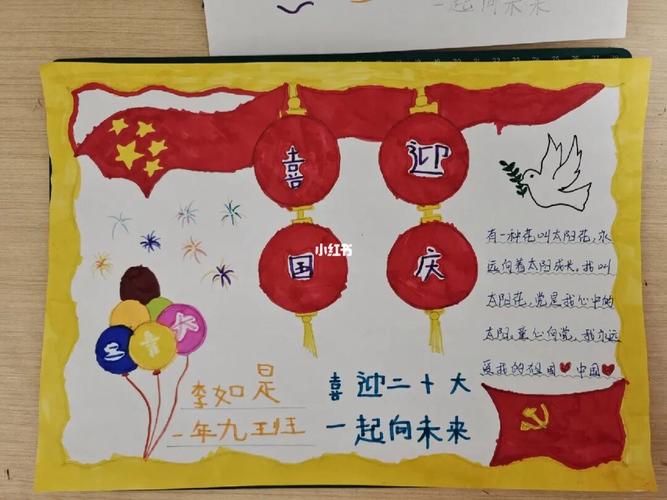 一起向未来
喜迎
国庆
小红书
有一种花叫太阳花，永
远向着太阳成长，我叫
太阳花，党是我心中的
太阳，童心向党，我永远
爱我的祖国❤中国❤
李如是
一年九班
喜迎二十大
一起向未来